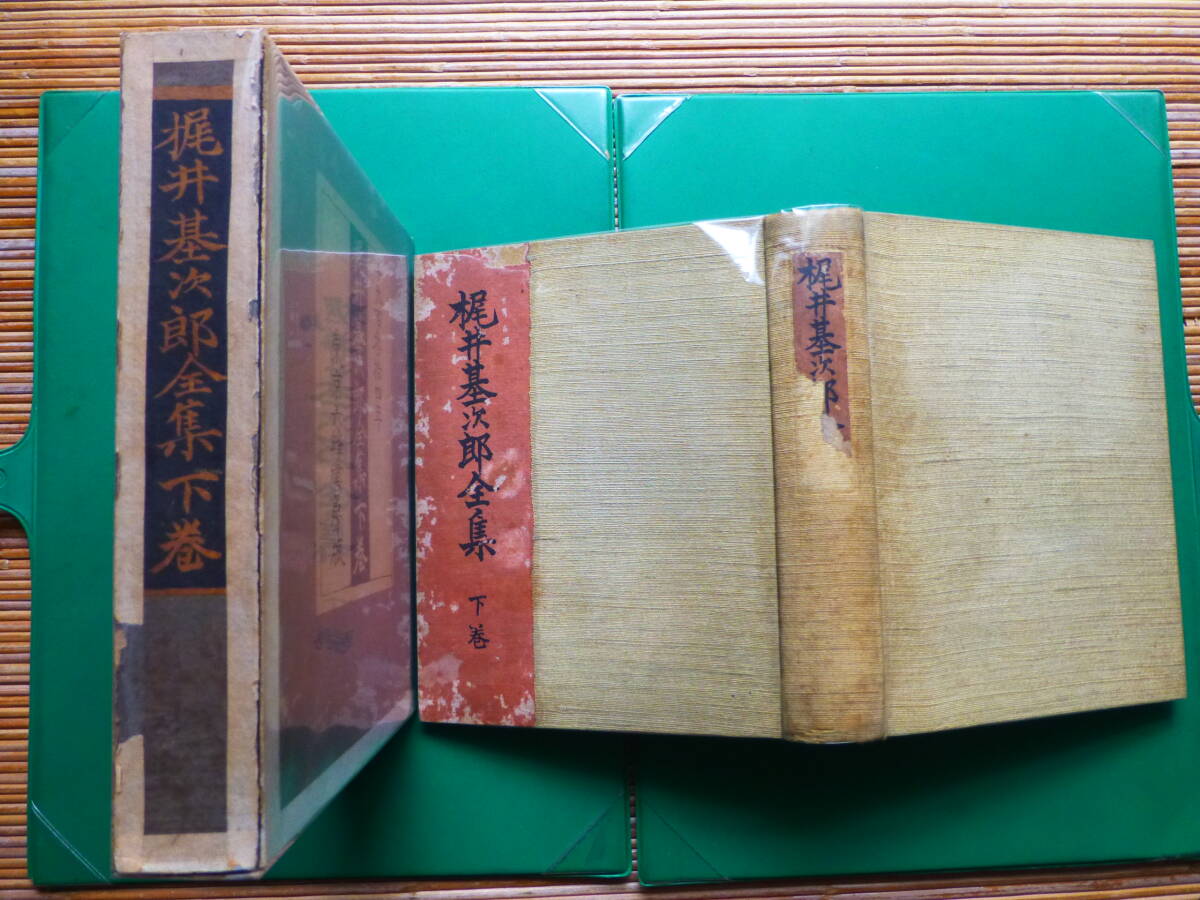 梶井基次郎全集下巻
梶井基次郎全集
下巻
梶井基次郎